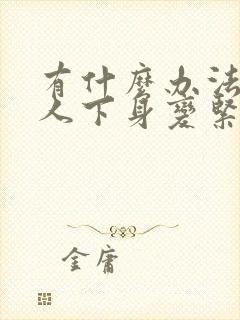 有什麼办法
人下身变緊
金庸